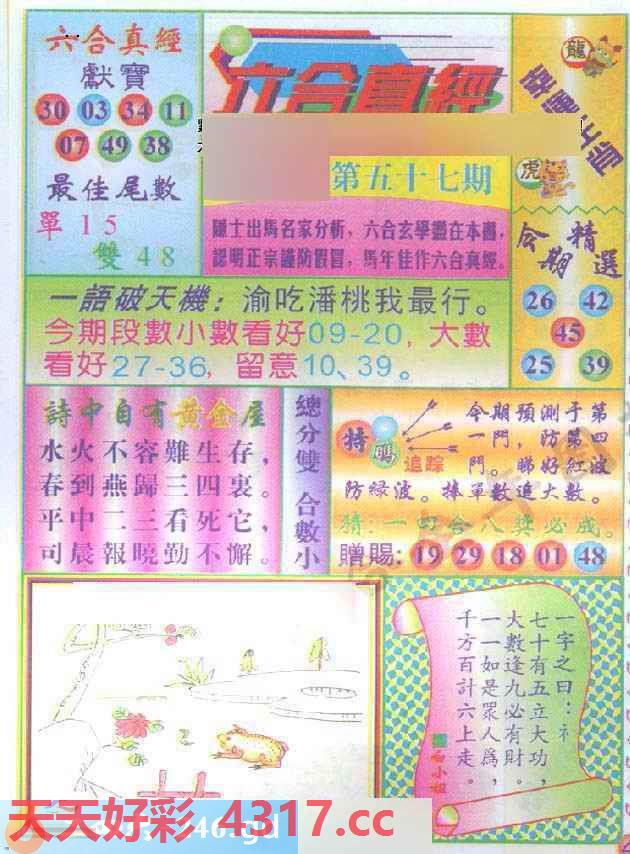 六合真經
獻寶
30 03 34 11
07 49 38
最佳尾數
單15
雙48
六合真經
第五十七期
隱士出馬名家分析，六合玄學盡在本圖，
認明正宗謹防假冒，馬年佳作六合真經。
龍
虎
今期精選
26 42
45
25 39
一語破天機：渝吃潘桃我最行。
今期段數小數看好09-20，大數
看好27-36，留意10、39。
詩中自有黃金屋
水火不容難生存，
春到燕歸三四裏。
平中二三看死它，
司晨報曉勤不懈。
總分雙 合數小
特碼
追踪
今期預測于第
一門，防第四
門。睇好紅波
防緑波。捧單數追大數。
猜：一四合八獎必成。
贈賜：19 29 18 01 48
一字之曰：礻
七十有五立大功，
大數逢九必有財。
一一如是眾人為，
千方百計六上走。
白小姐
天天好彩 4317.cc